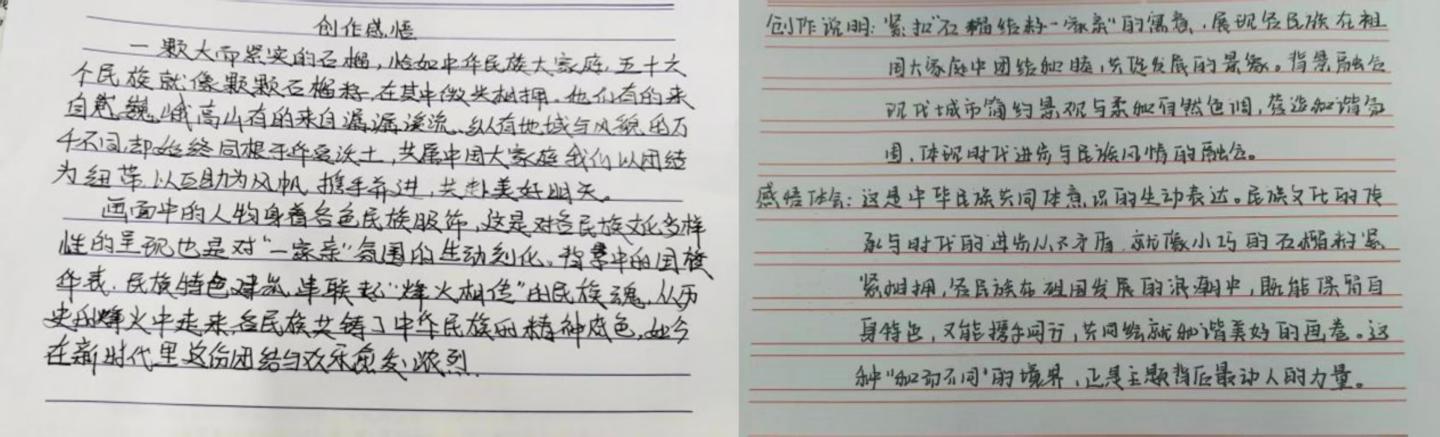 创作感悟
一颗大而紧实的石榴,恰如中华民族大家庭,五十六
个民族就像颗颗石榴籽,在其中微笑相拥。他们有的来
自巍巍峨高山有的来自潺潺溪流、纵有地域与风貌的万
千不同,却始终同根于华夏沃土,共属中国大家庭我们以团结
为纽带,以互助为风帆,携手并进,共赴美好明天。
画面中的人物身着各色民族服饰,这是对各民族文化多样
性的呈现也是对“一家亲”氛围的生动刻化。背景中的国旗
华表,民族特色建筑,串联起“烽火相传”的民族魂,从历
史的烽火中走来,各民族共铸了中华民族的精神底色,如今
在新时代里这份团结与欢乐愈发浓烈.
创作说明:紧扣“石榴结籽一家亲”的寓意,展现各民族在祖
国大家庭中团结和睦,共促发展的景象。背景融合
现代城市简约景观与柔和自然色调,营造和谐氛
围,体现时代进步与民族风情的融合。
感悟体会:这是中华民族共同体意识的生动表达。民族文化的传
承与时代的进步从不矛盾,就像小巧的石榴籽紧
紧相拥,各民族在祖国发展的浪潮中,既能保留自
身特色,又能携手同行,共同绘就和谐美好的画卷。这
种“和而不同”的境界,正是主题背后最动人的力量。